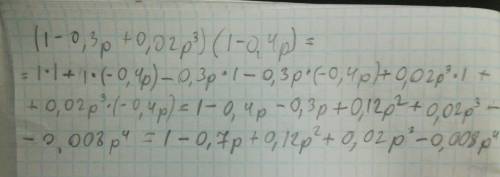 (1-0,3p+0,02p³)(1-0,4p)=
=1·1+1·(-0,4p)-0,3p·1-0,3p·(-0,4p)+0,02p³·1+
+0,02p³·(-0,4p)=1-0,4p-0,3p+0,12p²+0,02p³-
-0,008p⁴=1-0,7p+0,12p²+0,02p³-0,008p⁴